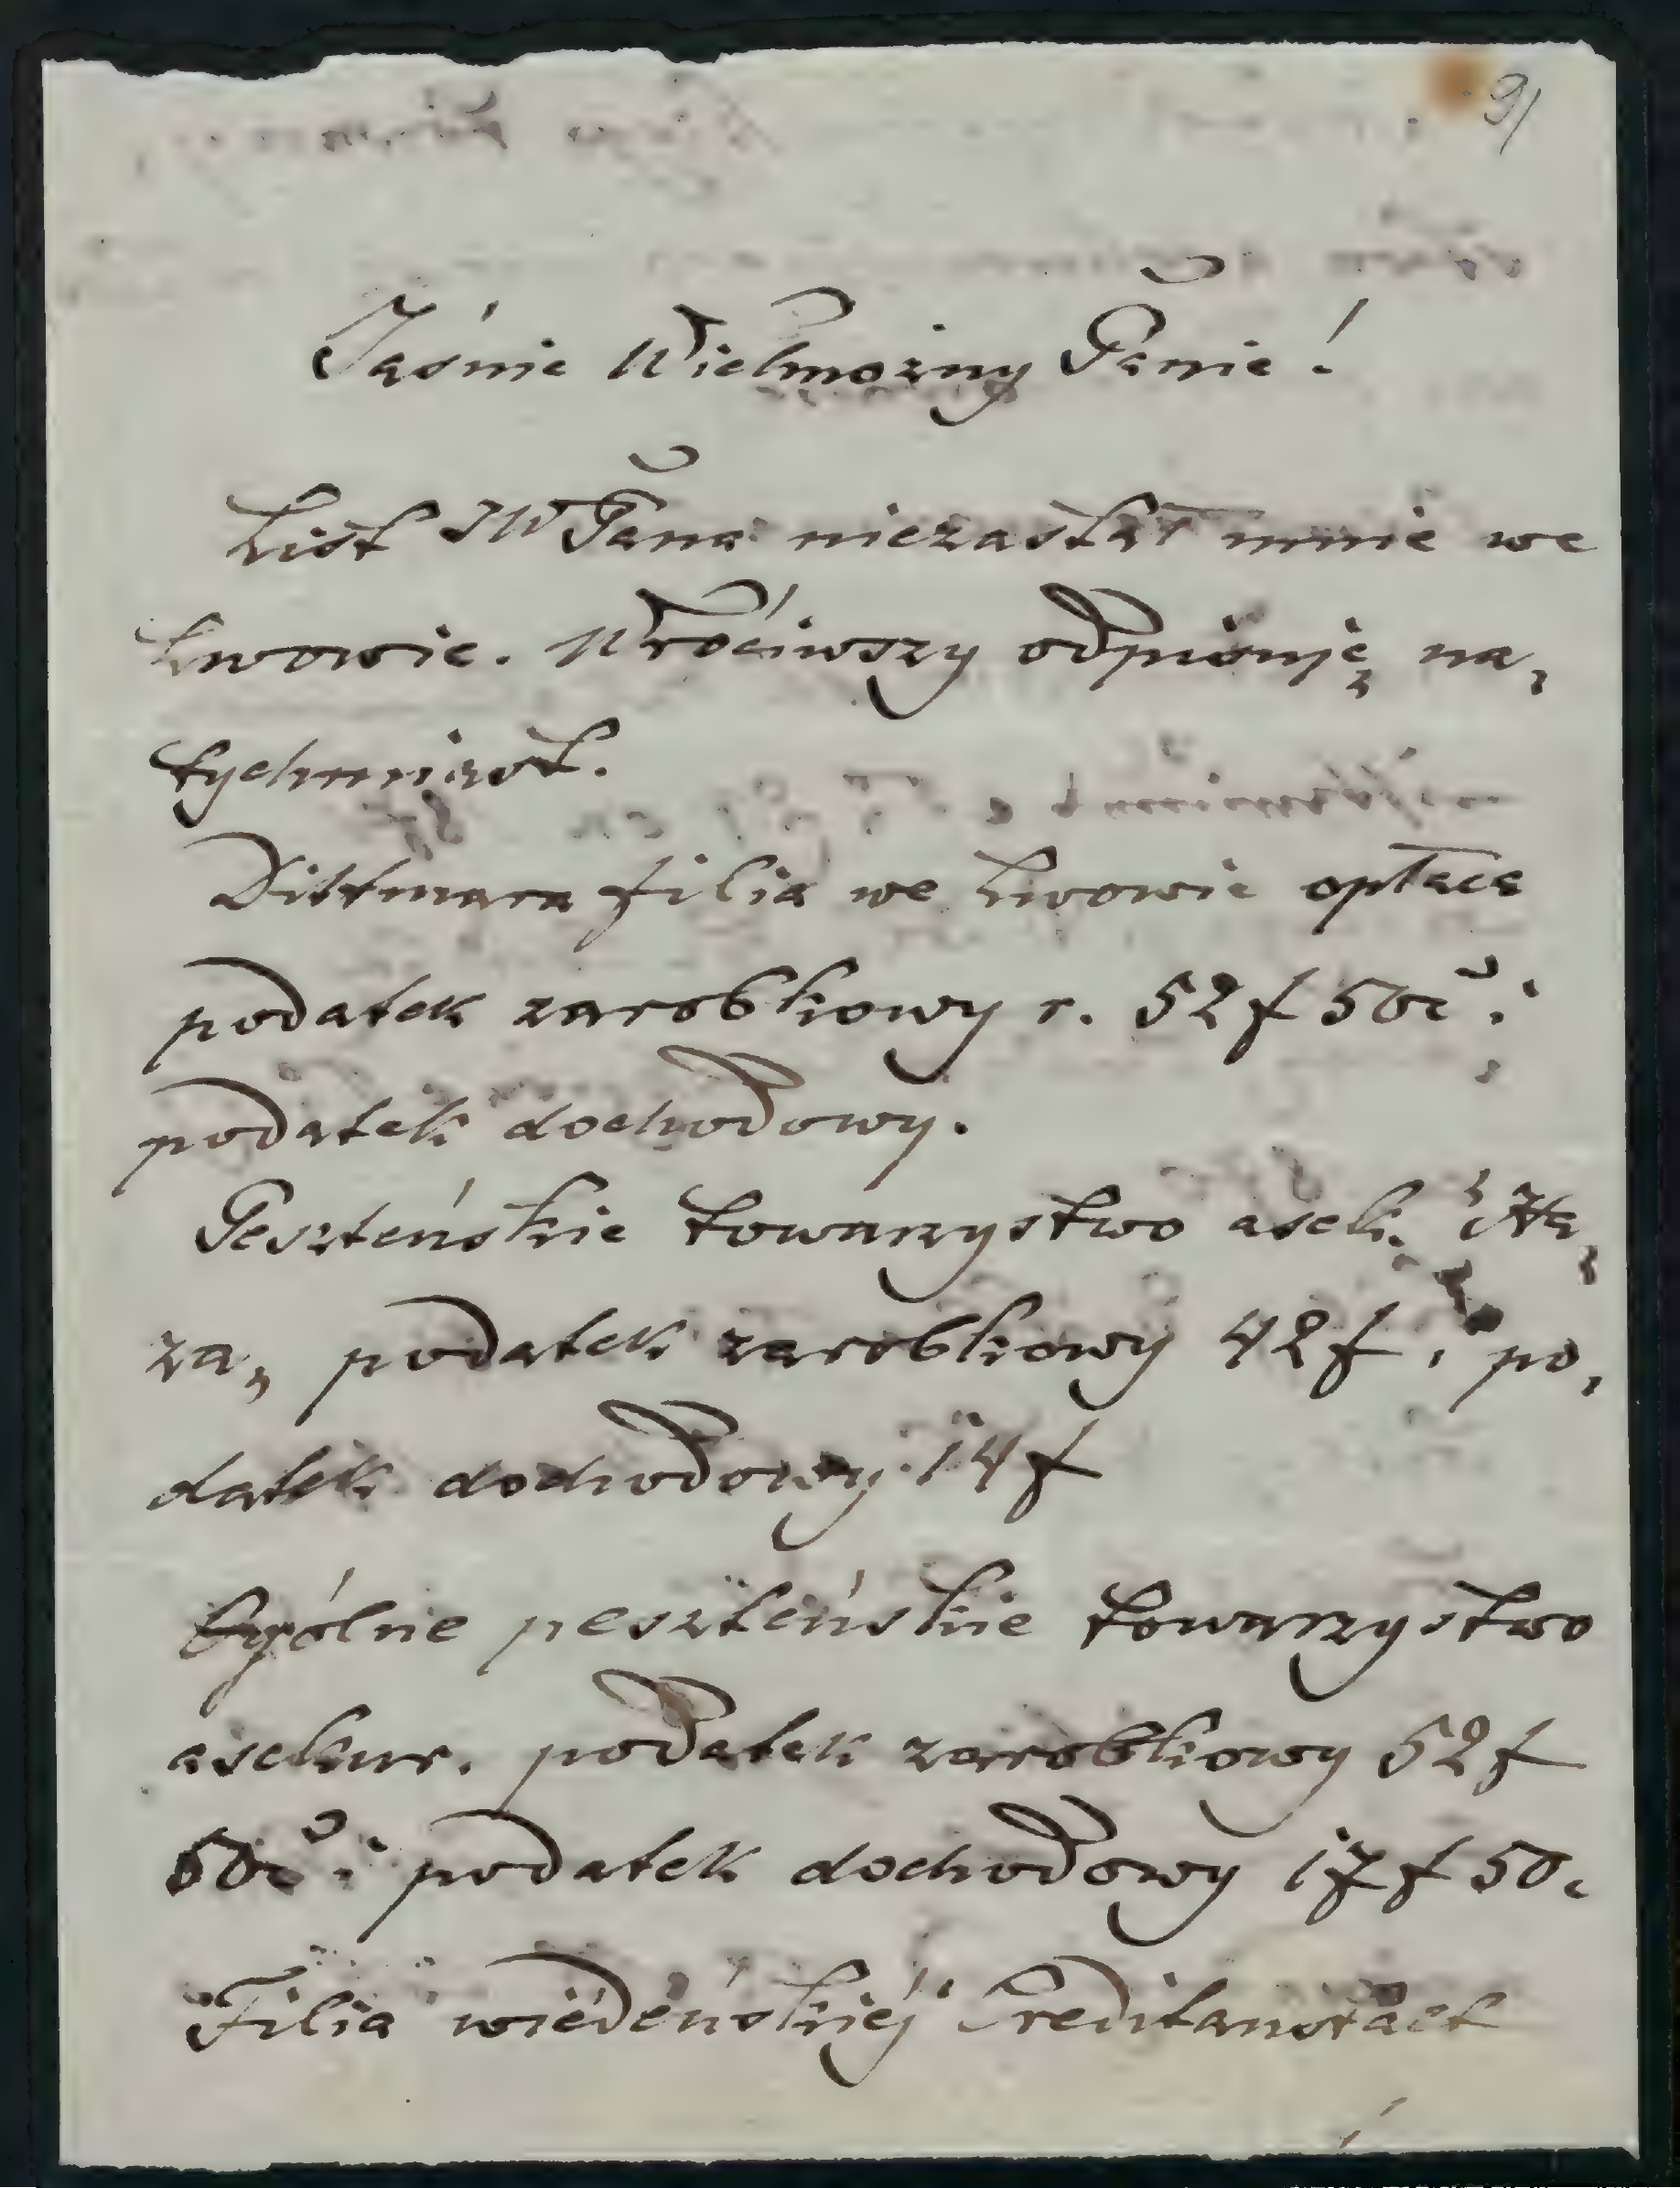 91
Jaśnie Wielmożny Panie!
List JW Pana niezastał mnie we
Lwowie. Wróciwszy odpisuję na,
tychmiast.
Dittmara filia we Lwowie opłaca
podatek zarobkowy r. 52 f 50 c i
podatek dochodowy.
Peszteńskie towarzystwo asek. „Ha,
za„ podatek zarobkowy 42 f. i po,
datek dochodowy 14 f
Ogólne peszteńskie towarzystwo
asekur. podatek zarobkowy 52 f
50 c i podatek dochodowy 17 f 50 c
Filia wiedeńskiéj Creditanstalt